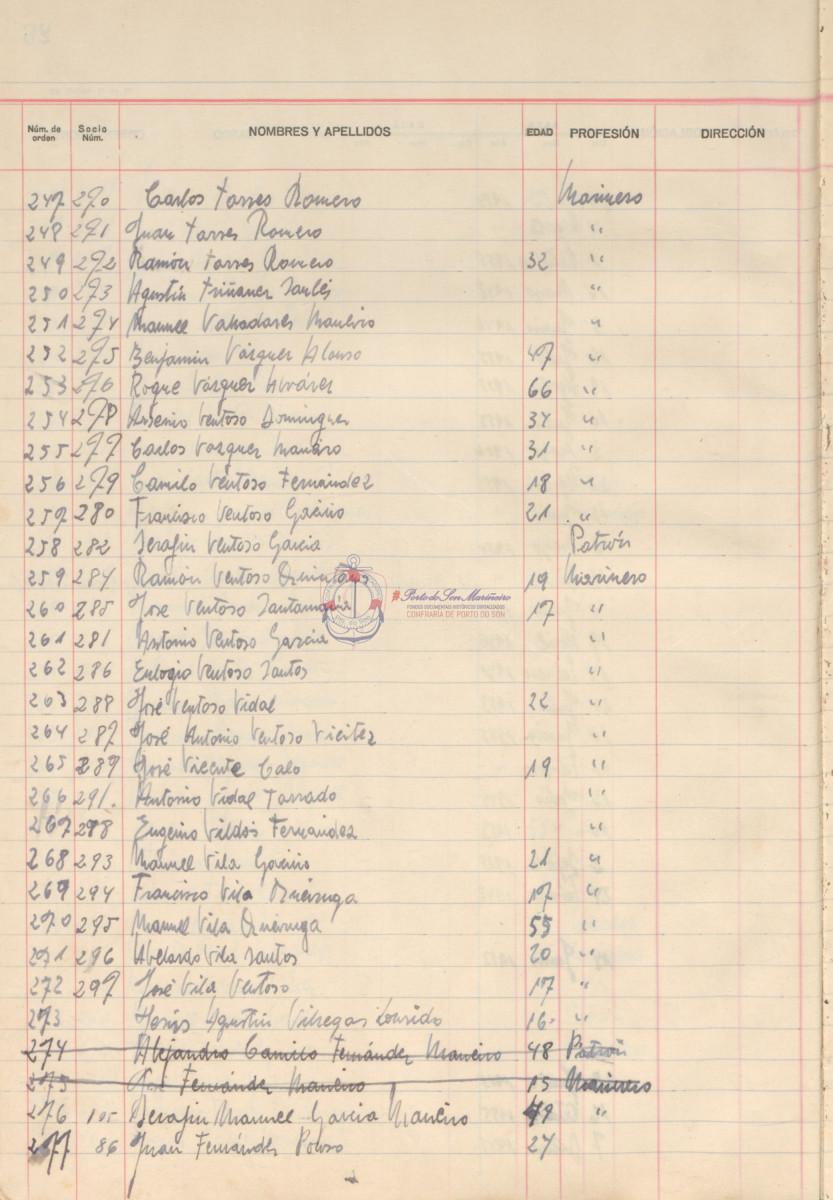 Núm. de orden Socio Núm. NOMBRES Y APELLIDOS EDAD PROFESIÓN DIRECCIÓN
247 270 Carlos Torres Romero Marinero
248 271 Juan Torres Romero "
249 272 Ramón Torres Romero 32 "
250 273 Agustín Triñanes "
251 274 Manuel Valladares Maneiro "
252 275 Benjamin Vázquez Alonso 47 "
253 276 Roque Vázquez Alvárez 66 "
254 278 Arsenio Ventoso Dominguez 37 "
255 277 Carlos Vázquez Maneiro 31 "
256 279 Camilo Ventoso Fernández 18 "
257 280 Francisco Ventoso Gaciño 21 "
258 282 Serafin Ventoso Garcia Patrón
259 284 Ramón Ventoso Quintans 19 Marinero
260 285 José Ventoso Santamaria 17 "
261 281 Antonio Ventoso Garcia "
262 286 Eulogio Ventoso Santos "
263 288 José Ventoso Vidal 22 "
264 287 José Antonio Ventoso Vieitez "
265 289 José Vicente Calo 19 "
266 291. Antonio Vidal Torrado "
267 298 Eugenio Fernández "
268 293 Manuel Vila Gaciño 21 "
269 294 Francisco Vila Queiruga 17 "
270 295 Manuel Vila Queiruga 55 "
271 296 Abelardo Vila Santos 20 "
272 297 José Vila Ventoso 17 "
273 Jesús Agustin Villegas Lourido 16. "
274 Alejandro Camilo Fernández Maneiro 48 Patrón
275 José Fernández Maneiro 15 Marinero
276 105 Serafin Manuel Garcia Maneiro 49 "
277 86 Juan Fernández Pouso 27
#Porto do Son Mariñeiro
FONDOS DOCUMENTAIS HISTÓRICOS DIXITALIZADOS
CONFRARÍA DE PORTO DO SON